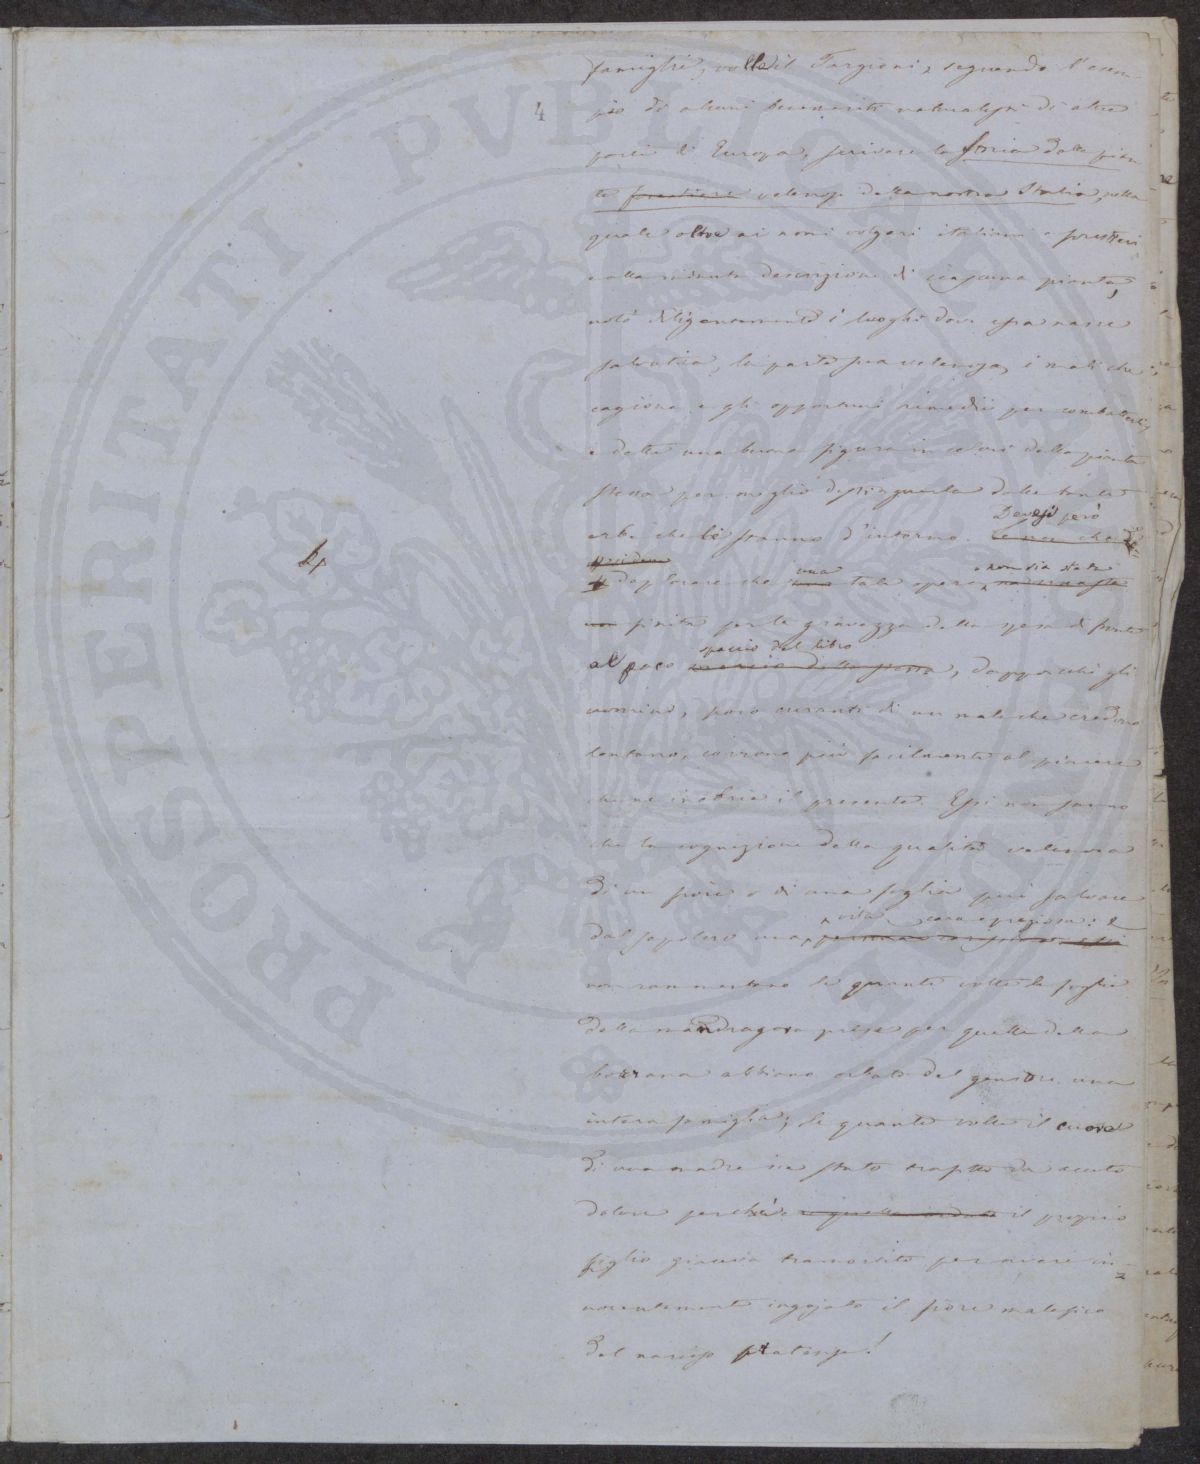 4
famiglie, volle il Targioni, seguendo l'esem-
pio di alcuni benemeriti naturalisti di altre
parti d'Europa, scrivere la storia delle pian
te forestiere velenose della nostra Italia, nella
quale oltre ai nomi volgari italiani e forestieri
e alla minuta descrizione di ciascuna pianta,
notò diligentemente i luoghi dove essa nasce
salvatica, la parte sua velenosa, i mali che
cagiona e gli opportuni rimedii per combatterli,
e dette una buona figura in colori della pianta
stessa per meglio distinguerla dalle tante
Devesi però
erbe che le stanno d'intorno.
4
una non sia stata
deplorare che tale opera
finita per la gravezza della spesa di fronte
spaccio del libro
al poco , dappoichè gli
uomini, poco curanti di un male che credono
lontano, corrono più facilmente al piacere
che ne inebria il presente. Essi non sanno
che la cognizione della qualità velenosa
di un fiore o di una foglia può salvare
vita cara e preziosa: e
dal sepolcro una
non rammentano le quante volte le foglie
della mandragora prese per quelle della
borrana abbiano orbato del genitore una
intera famiglia; le quante volte il cuore
di una madre sia stato trafitto da acuto
dolore perchè il proprio
figlio giaceva tramortito per avere in-
nocentemente ingojato il fiore malefico
del narciso pratense!
PROSPERITATI PVBLICAE AVGENDAE